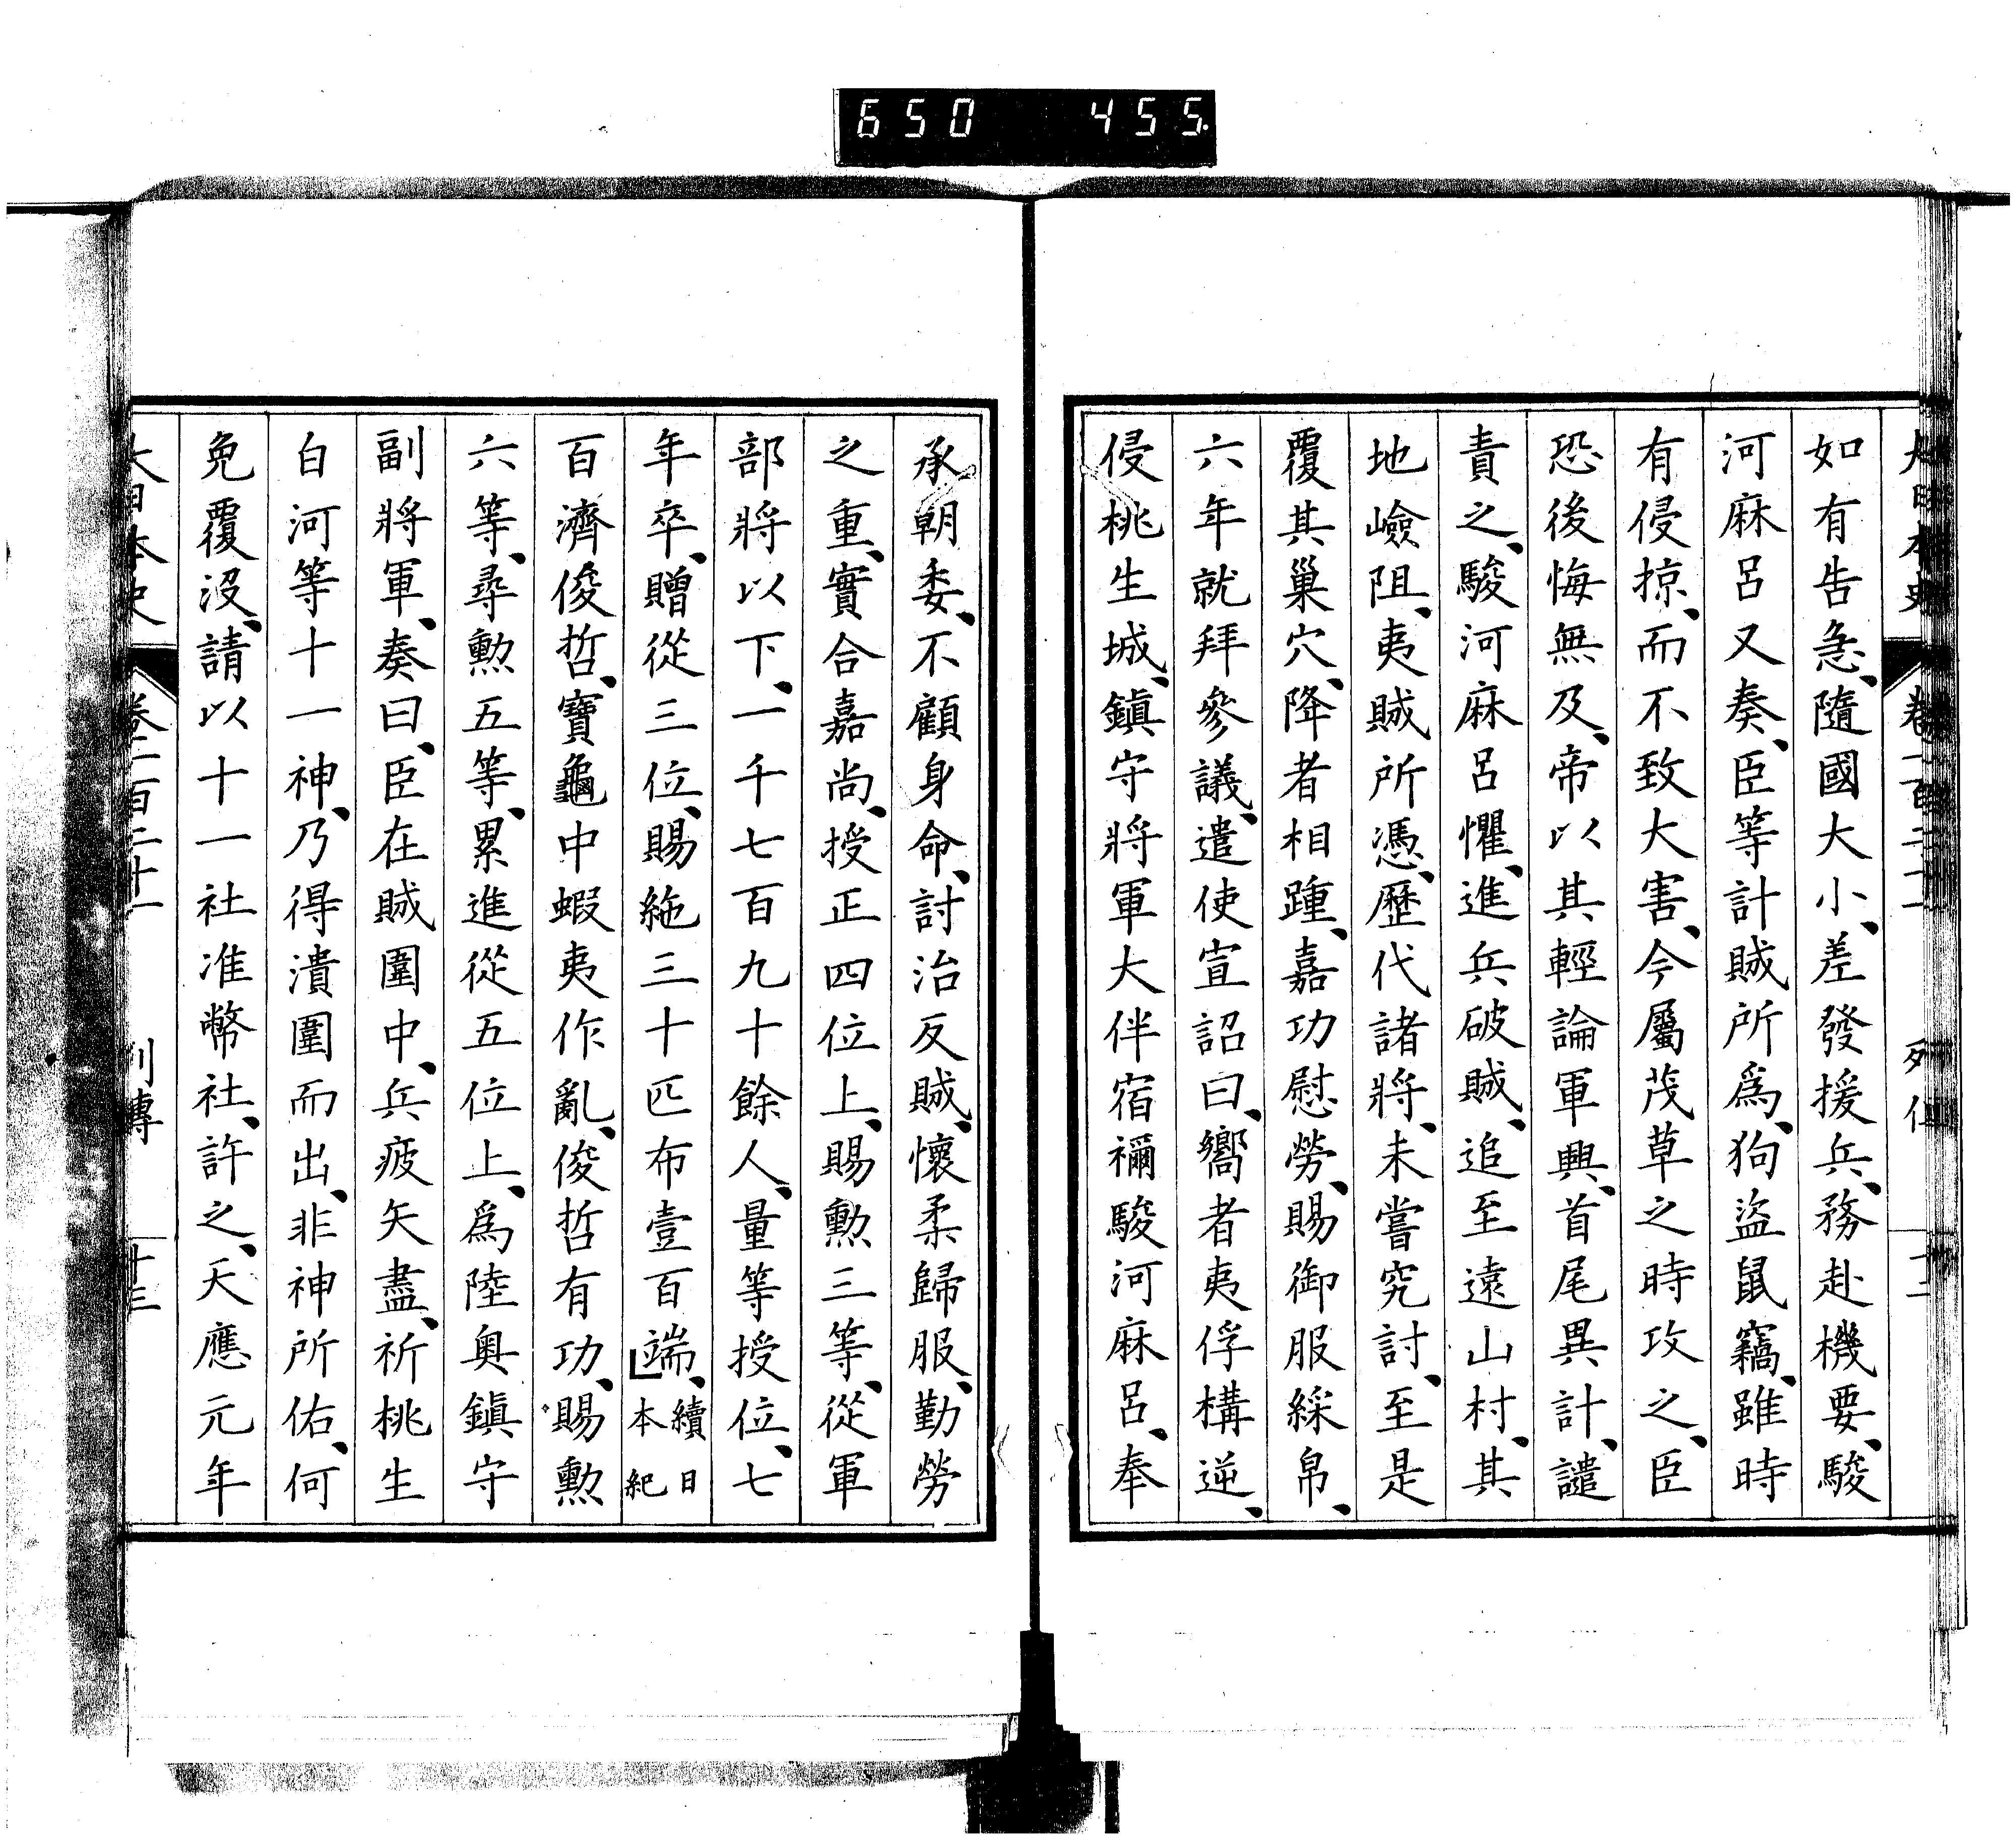 650 455.
如有告急、隨國大小、差發援兵、務赴機要、駿
河麻呂又奏、臣等計賊所爲、狗盜鼠竊、雖時
有侵掠、而不致大害、今屬茂草之時攻之、臣
恐後悔無及、帝以其輕論軍興、首尾異計、譴
責之、駿河麻呂懼、進兵破賊、追至遠山村、其
地嶮阻、夷賊所憑、歷代諸將、未嘗究討、至是
覆其巢穴、降者相踵、嘉功慰勞、賜御服綵帛、
六年就拜參議、遣使宣詔曰、嚮者夷俘構逆、
侵桃生城、鎭守將軍大伴宿禰駿河麻呂、奉
承朝委、不顧身命、討治反賊、懷柔歸服、勤勞
之重、實合嘉尚、授正四位上、賜勲三等、從軍
部將以下、一千七百九十餘人、量等授位、七
年卒、贈從三位、賜絁三十匹布壹百端、續日本紀
百濟俊哲、寶龜中蝦夷作亂、俊哲有功、賜勲
六等、尋勲五等、累進從五位上、爲陸奧鎭守
副將軍、奏曰、臣在賊圍中、兵疲矢盡、祈桃生
白河等十一神、乃得潰圍而出、非神所佑、何
免覆沒、請以十一社准幣社、許之、天應元年